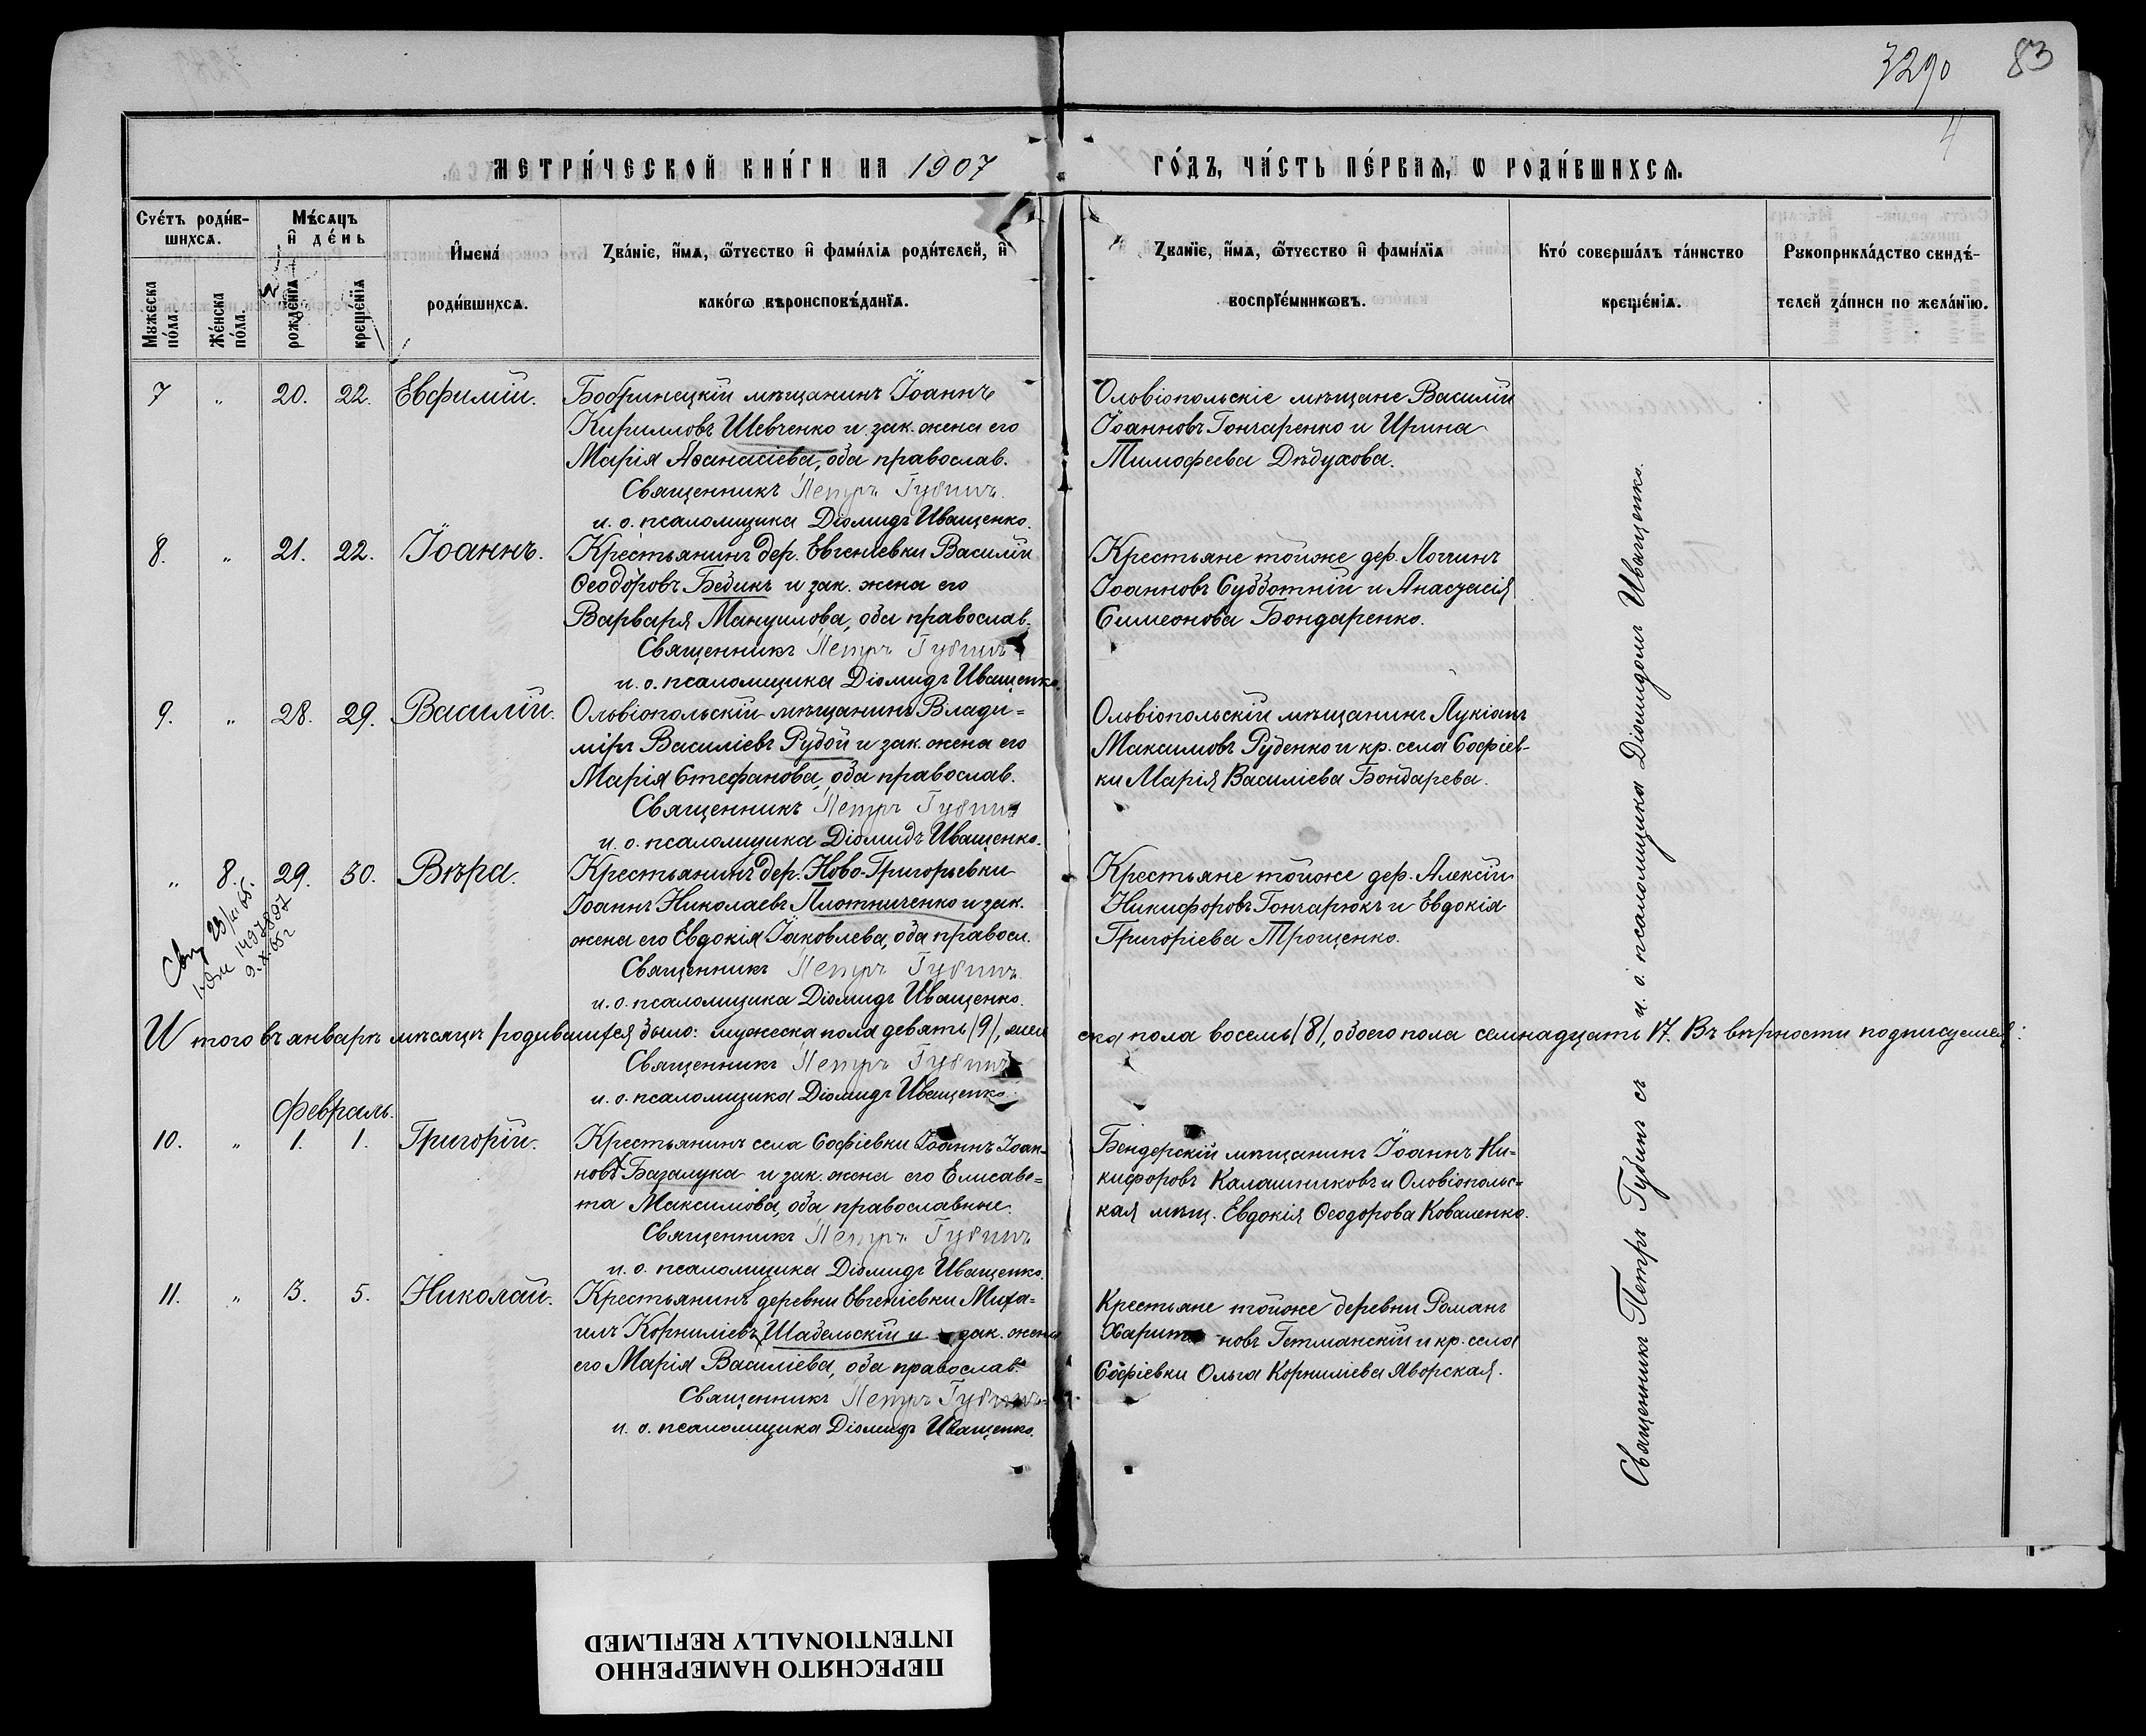 3290 83
4
МЕТРИ́ЧЕСКОЙ КНИ́ГИ НА 1907 ГО́ДЪ, ЧА́СТЬ ПЕ́РВАѦ, Ѡ РОДИ́ВШИХСѦ.
Сче́тъ роди́в-
шихсѧ.
Мꙋжеска по́ла.
Же́нска по́ла.
Мѣ́сѧцъ
и҆ де́нь
рожде́нїѧ
креще́нїѧ
И҆мена́
роди́вшихсѧ.
Зва́нїе, и҆́мѧ, ѻ҆́тчество и҆ фами́лїѧ роди́телей, и҆
како́гѡ вѣроисповѣ́данїѧ.
Зва́нїе, и҆́мѧ, ѻ҆́тчество и҆ фами́лїѧ
воспрїе́мникѡвъ.
Кто́ соверша́лъ та́инство
креще́нїѧ.
Рꙋкоприкла́дство свидѣ́-
телей за́писи по жела́нїю.
7 " 20. 22. Евфимій.
Бобринецкій мѣщанинъ Іоаннъ
Кирилловъ Шевченко и зак. жена его
Марія Аѳанасіева, оба православ.
Священникъ Петръ Губинъ
и. о. псаломщика Діомидъ Иващенко.
Ольвіопольскіе мѣщане Василій
Іоанновъ Гончаренко и Ирина
Тимофеева Дѣдухова.
8. " 21. 22. Іоаннъ.
Крестьянинъ дер. Евгеніевки Василій
Ѳеодоровъ Бедикъ и зак. жена его
Варвара Мануилова, оба православ.
Священникъ Петръ Губинъ
и. о. псаломщика Діомидъ Иващенко.
Крестьяне тойже дер. Логгинъ
Іоанновъ Субботній и Анастасія
Симеонова Бондаренко.
9. " 28. 29. Василій.
Ольвіопольскій мѣщанинъ Влади-
міръ Василіевъ Рубой и зак. жена его
Марія Стефанова, оба православ.
Священникъ Петръ Губинъ
и. о. псаломщика Діомидъ Иващенко.
Ольвіопольскій мѣщанинъ Лукіанъ
Максимовъ Руденко и кр. села Софіев-
ки Марія Василіева Бондарева.
" 8. 29. 30. Вѣра.
Крестьянинъ дер. Ново-Григорьевки
Іоаннъ Николаевъ Плотниченко и зак.
жена его Евдокія Іаковлева, оба правосл.
Священникъ Петръ Губинъ
и. о. псаломщика Діомидъ Иващенко.
Крестьяне тойже дер. Алексій
Никифоровъ Гончарюкъ и Евдокія
Григоріева Трощенко.
Итого въ январѣ мѣсяцѣ родившихся было: мужеска пола девять /9/, женска пола восемь /8/, обоего пола семнадцать 17. Въ вѣрности подписуемся:
Священникъ Петръ Губинъ
и. о. псаломщика Діомидъ Иващенко.
Февраль.
10. " 1. 1. Григорій.
Крестьянинъ села Софіевки Іоаннъ Іоан-
новъ Базалука и зак. жена его Елисаве-
та Максимова, оба православные.
Священникъ Петръ Губинъ
и. о. псаломщика Діомидъ Иващенко.
Бендерскій мѣщанинъ Іоаннъ Ни-
кифоровъ Калашниковъ и Ольвіополь-
ская мѣщ. Евдокія Ѳеодорова Коваленко.
11. " 3. 5. Николай.
Крестьянинъ деревни Евгеніевки Миха-
илъ Корниліевъ Шабельскій и зак. жена
его Марія Василіева, оба православ.
Священникъ Петръ Губинъ
и. о. псаломщика Діомидъ Иващенко.
Крестьяне тойже деревни Романъ
Харитоновъ Гетманскій и кр. села
Софіевки Ольга Корниліева Яворская.
Священникъ Петръ Губинъ съ и. о. псаломщика Діомидомъ Иващенко.
ПЕРЕСНЯТО НАМЕРЕННО
INTENTIONALLY REFILMED